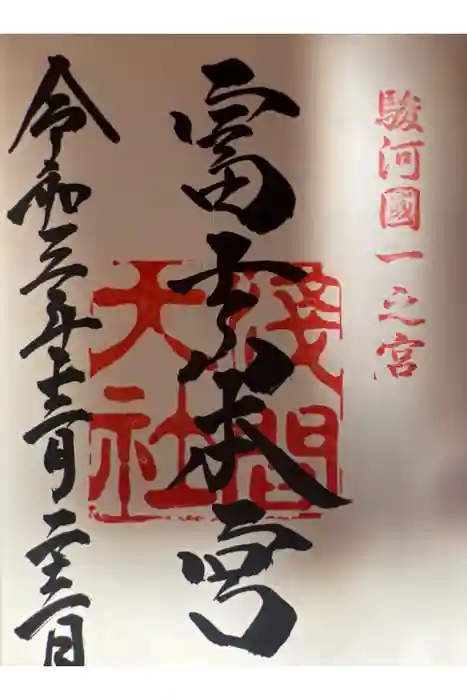 駿河國一之宮
富士山本宮
淺間大社
令和三年十二月二十二日